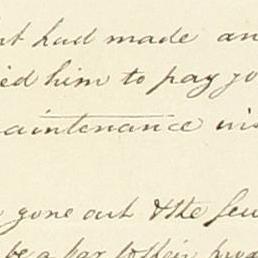 had made an
him to pay
maintenance
gone out & the few
be a bar to their